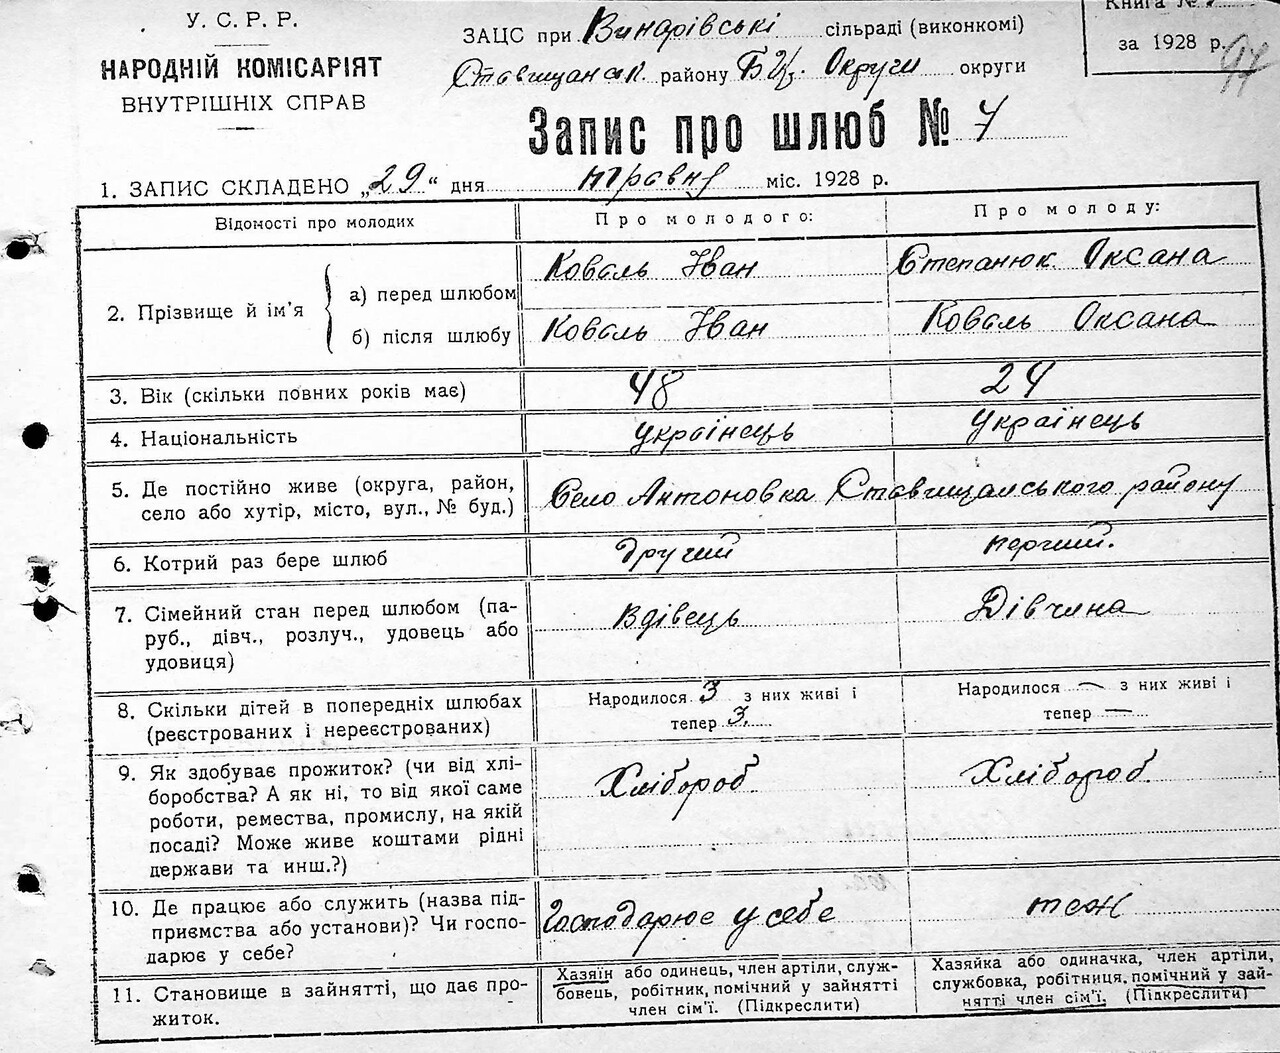 У. С. Р. Р.
НАРОДНІЙ КОМІСАРІЯТ
ВНУТРІШНІХ СПРАВ
ЗАЦС при Винарівські сільраді (виконкомі)
Ставищанск. району Б.Ц. Округи округи
Книга №
за 1928 р.
97
Запис про шлюб № 7
1. ЗАПИС СКЛАДЕНО „29“ дня травня міс. 1928 р.
Відомості про молодих
Про молодого:
Про молоду:
2. Прізвище й ім’я
а) перед шлюбом
Коваль Іван
Степанюк Оксана
б) після шлюбу
Коваль Іван
Коваль Оксана
3. Вік (скільки повних років має)
48
24
4. Національність
українець
Українець
5. Де постійно живе (округа, район,
село або хутір, місто, вул., № буд.)
Село Антоновка Ставищанського району
6. Котрий раз бере шлюб
другий
перший.
7. Сімейний стан перед шлюбом (па-
руб., дівч., розлуч., удовець або
удовиця)
Вдівець
Дівчина
8. Скільки дітей в попередніх шлюбах
(реєстрованих і нереєстрованих)
Народилося 3 з них живі і
тепер 3.
Народилося — з них живі і
тепер —
9. Як здобуває прожиток? (чи від хлі-
боробства? А як ні, то від якої саме
роботи, ремества, промислу, на якій
посаді? Може живе коштами рідні
держави та инш.?)
Хлібороб
Хлібороб
10. Де працює або служить (назва під-
приємства або установи)? Чи госпо-
дарює у себе?
Господарює у себе
теж
11. Становище в зайнятті, що дає про-
житок.
Хазяїн або одинець, член артіли, служ-
бовець, робітник, помічний у зайнятті
член сім’ї. (Підкреслити)
Хазяйка або одиначка, член артіли,
службовка, робітниця, помічний у зай-
нятті член сім’ї. (Підкреслити)